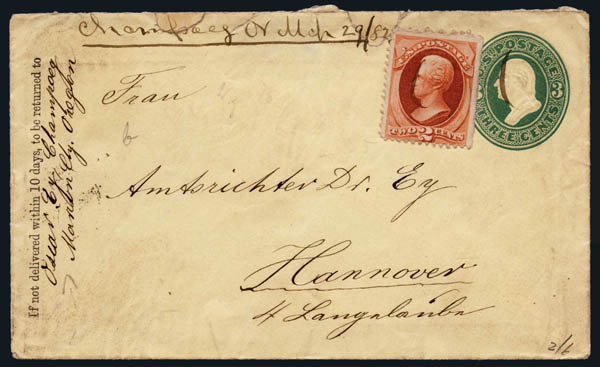 Champoeg Or Mch 29/82
If not delivered within 10 days, to be returned to
Oscar Ey Champoeg
Marion Cy. Oregon
U.S. POSTAGE
TWO 2 CENTS
U.S. POSTAGE
3 3
THREE CENTS
Frau
Amtsrichter Dr. Ey
Hannover
4 Langelaube
2/6